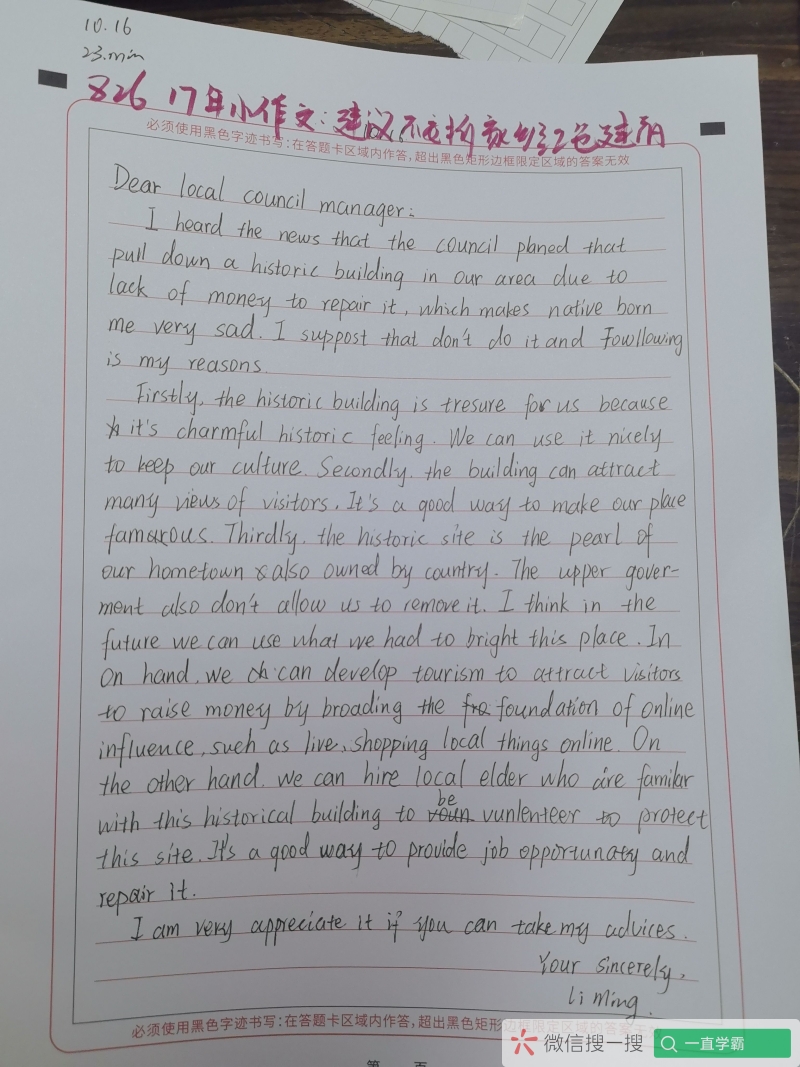 10.16
23.min
826 17年小作文:建议不要拆家乡红色建筑
必须使用黑色字迹书写:在答题卡区域内作答,超出黑色矩形边框限定区域的答案无效
Dear local council manager:
I heard the news that the council planed that
pull down a historic building in our area due to
lack of money to repair it, which makes native born
me very sad. I suppost that don't do it and Fowllowing
is my reasons.
Firstly, the historic building is tresure for us because
it's charmful historic feeling. We can use it nicely
to keep our culture. Secondly, the building can attract
many views of visitors. It's a good way to make our place
famarous. Thirdly, the historic site is the pearl of
our hometown & also owned by country. The upper gover-
ment also don't allow us to remove it. I think in the
future we can use what we had to bright this place. In
On hand, we can develop tourism to attract visitors
to raise money by broading the foundation of online
influence, such as live, shopping local things online. On
the other hand, we can hire local elder who are familar
with this historical building to be vunlenteer to protect
this site. It's a good way to provide job opportunaty and
repair it.
I am very appreciate it if you can take my advices.
Your sincerely,
Li Ming.
必须使用黑色字迹书写:在答题卡区域内作答,超出黑色矩形边框限定区域的答案无效
第 页
微信搜一搜
一直学霸